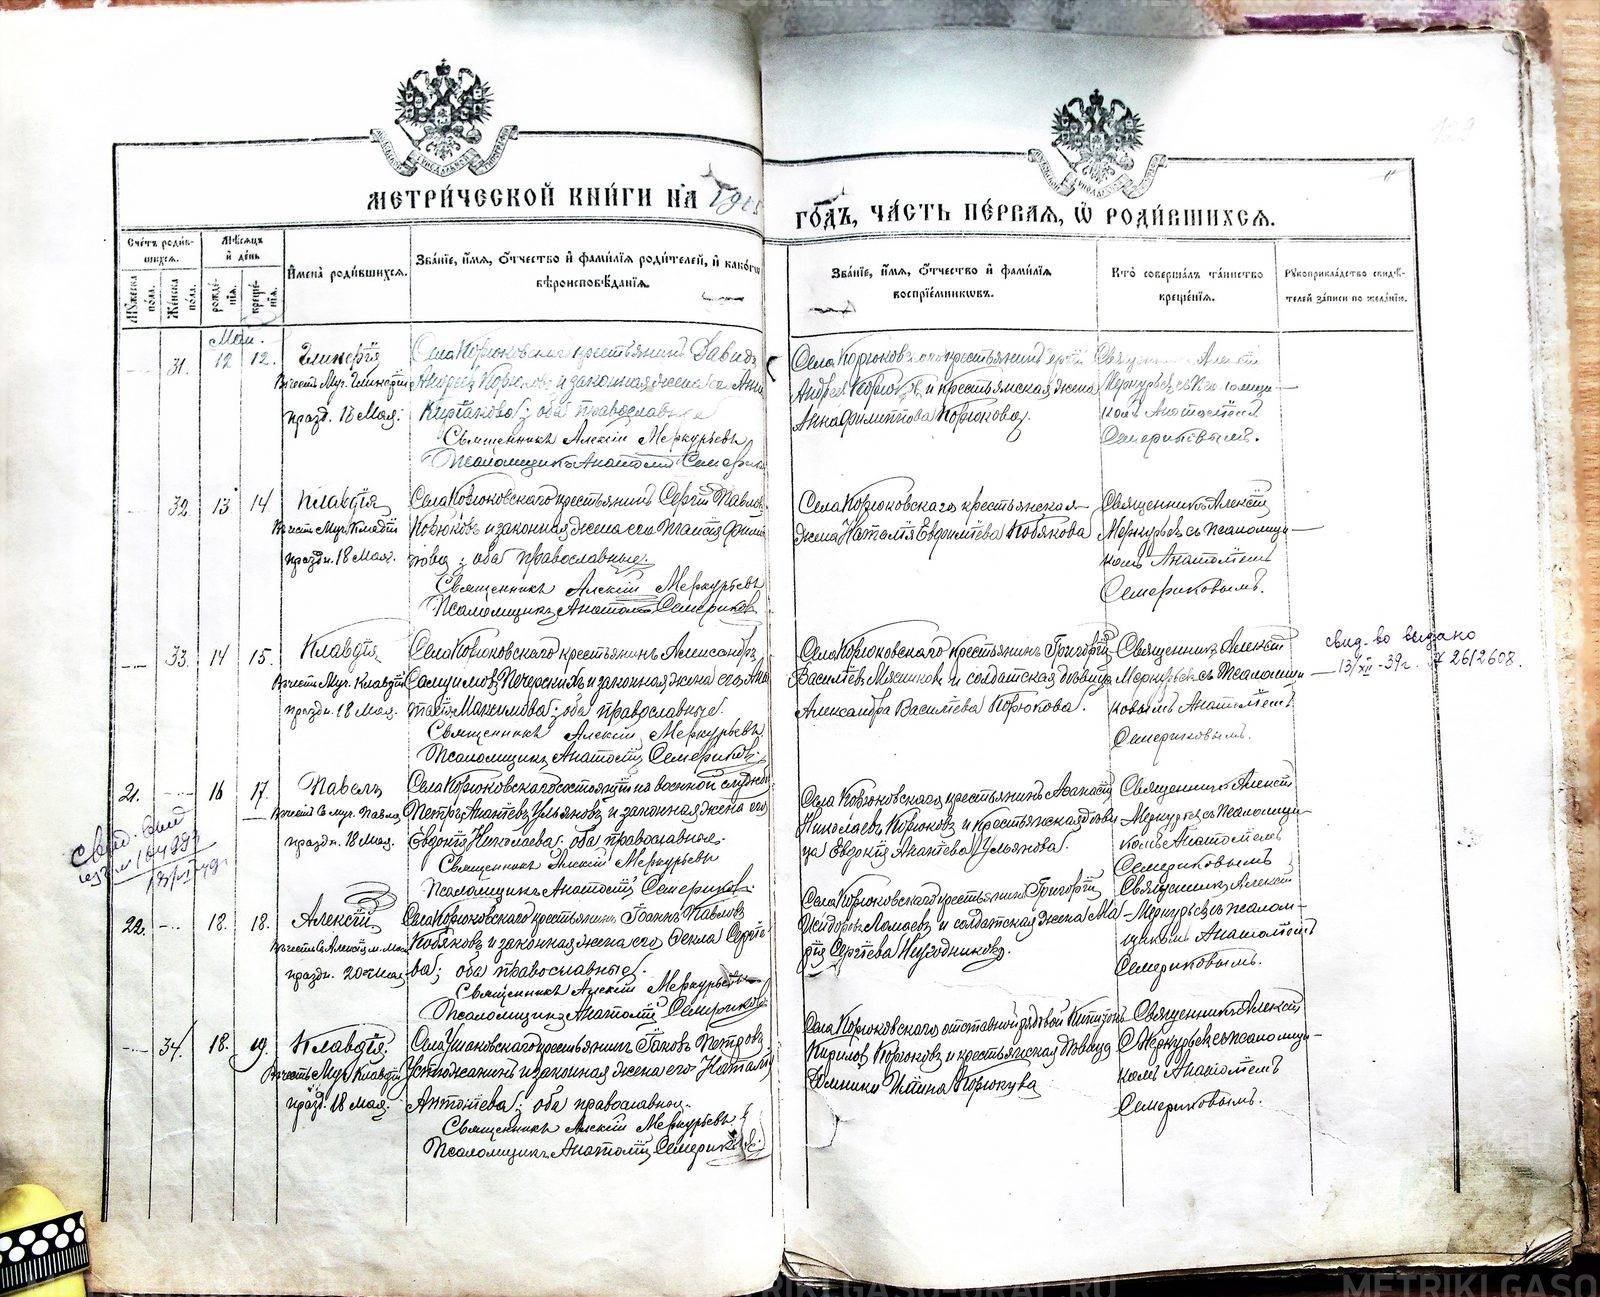 МЕТРИ́ЧЕСКОЙ КНИ́ГИ НА̀
ГО́ДЪ, ЧА́СТЬ ПЕ́РВАЯ, Ѽ РОДИ́ВШИХСЯ.
Сче́тъ роди́в-
шихся.
Мѣ́сяцъ
и҆ де́нь
Му́жеска
по́ла.
Же́нска
по́ла.
рожде́-
нїя.
креще́-
нїя.
И҆мена̀ роди́вшихся.
Зва́нїе, и҆́мя, ѻ҆́тчество и҆ фами́лїя роди́телей, и҆ како́гѡ
вѣроисповѣ́данїя.
Зва́нїе, и҆́мя, ѻ҆́тчество и҆ фами́лїя
воспрїе́мниковъ.
Кто̀ соверша́лъ та́инство
креще́нїя.
Рукоприкла́дство свидѣ́-
телей за́писи по жела́нїю.
Маи.
31. 12 12. Гликерія
въ честь Муч. Гликеріи
празд. 13 Мая.
Села Корюковскаго крестьянинъ Давидъ
Андреевъ Корюковъ и законная жена его Анна
оба православные
Священникъ Алексій Меркурьевъ
Псаломщикъ Анатолій Семериковъ
Села Корюковскаго крестьянинъ
Андреевъ Корюковъ и крестьянская жена
Анна Филиппова Корюкова.
Священникъ Алексій
Меркурьевъ съ псаломщи-
комъ Анатоліемъ
Семериковымъ.
32. 13 14 Клавдія
въ честь Муч. Клавдіи
праздн. 18 Мая.
Села Корюковскаго крестьянинъ Сергій Павловъ
Корюковъ и законная жена его Таисія Филип
пова; оба православные.
Священникъ Алексій Меркурьевъ
Псаломщикъ Анатолій Семериковъ
Села Корюковскаго крестьянская
жена Наталія Евфиміева Кобякова
Священникъ Алексій
Меркурьевъ съ псаломщи-
комъ Анатоліемъ
Семериковымъ.
33. 14 15. Клавдія
въ честь Муч. Клавдіи
праздн. 18 Мая.
Села Корюковскаго крестьянинъ Александръ
Печерскихъ и законная жена его Ана
тасія Максимова; оба православные.
Священникъ Алексій Меркурьевъ
Псаломщикъ Анатолій Семериковъ.
Села Корюковскаго крестьянинъ Григорій
Василіевъ Мясников и солдатская дѣвица
Александра Василіева Корюкова.
Священникъ Алексій
Меркурьевъ съ псаломщи
комъ Анатоліемъ
Семериковымъ.
свид-во выдано
13/XII-39г. № 2612608.
21. 16 17. Павелъ
въ честь Св. муч. Павла,
праздн. 18 Мая.
Села Корюковскаго состоящій на военной службѣ
Петръ Ананіевъ Ульяновъ и законная жена его
Евдокія Николаева; оба православные.
Священникъ Алексій Меркурьевъ
Псаломщикъ Анатолій Семериковъ.
Села Корюковскаго крестьянинъ Аѳанасій
Николаевъ Корюковъ и крестьянская дѣви
ца Евдокія Ананіева Ульянова.
Священникъ Алексій
Меркурьевъ съ псаломщи-
комъ Анатоліемъ
Семериковымъ
22. 18. 18. Алексій
праздн. 20 Мая
Села Корюковскаго крестьянинъ Іоаннъ Павловъ
Кобяковъ и законная жена его Ѳекла Сергіе
ва; оба православные.
Священникъ Алексій Меркурьевъ
Псаломщикъ Анатолій Семериковъ
Села Корюковскаго крестьянинъ Григорій
Исидоровъ Ломаевъ и солдатская жена Ма
рія Сергіева
Священникъ Алексій
Меркурьевъ съ псалом-
щикомъ Анатоліемъ
Семериковымъ.
34. 18. 19. Клавдія.
въ честь Муч. Клавдіи
празд. 18 Мая.
Села Ушаковскаго крестьянинъ Іаковъ Петровъ
Устюжанинъ и законная жена его Наталія
Антоніева; оба православные.
Священникъ Алексій Меркурьевъ.
Псаломщикъ Анатолій Семериковъ
Села Корюковскаго отставной рядовой
Кириловъ Корюковъ и крестьянская дѣвица
Корюкова
Священникъ Алексій
Меркурьевъ съ псаломщи-
комъ Анатоліемъ
Семериковымъ.
METRIKI.GASO-URAL.RU
METRIKI.GASO